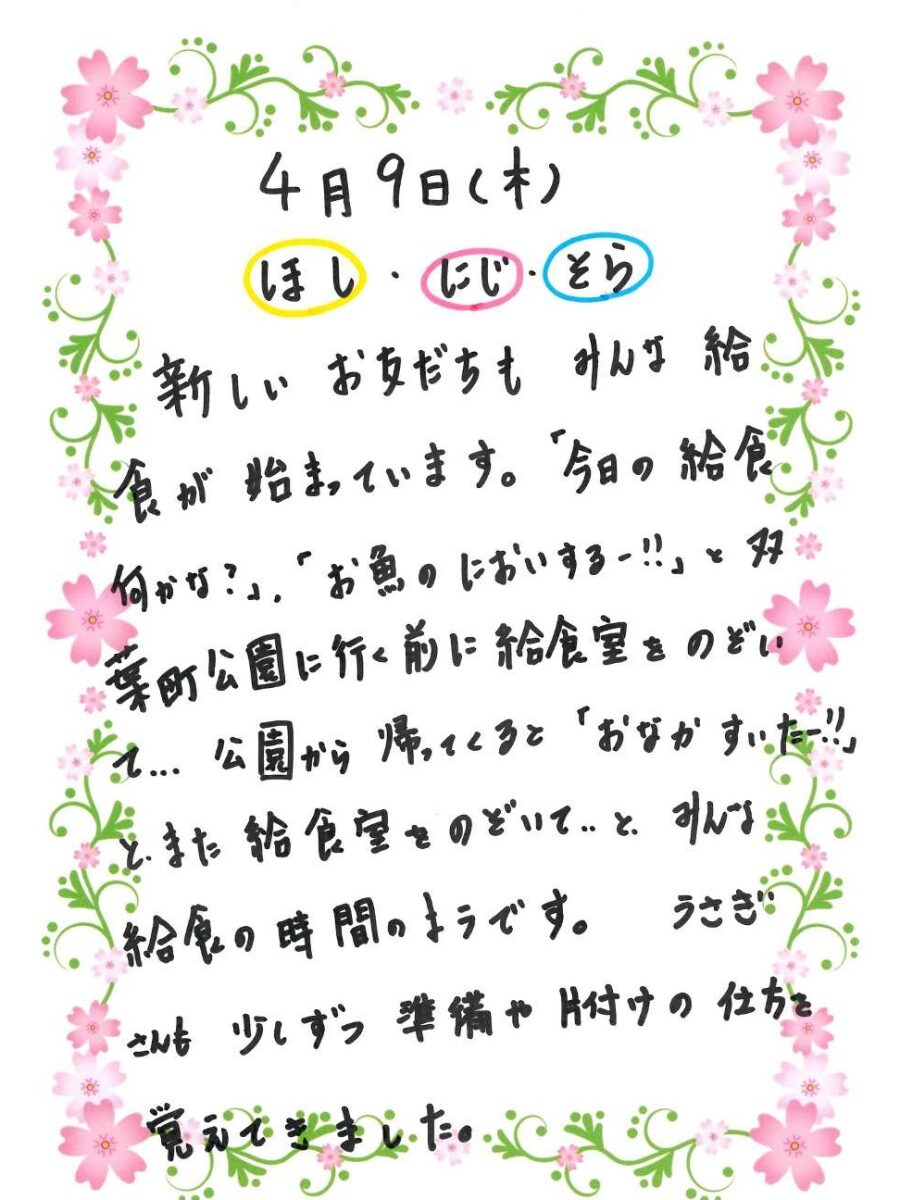 4月9日(木)
ほし・にじ・そら
新しい お友だちも みんな 給
食が 始まっています。「今日の 給食
何かな?」、「お魚の においするー!!」と 双
葉町公園に行く前に給食室を のぞい
て... 公園から 帰ってくると 「おなか すいたー!!」
と、また 給食室を のぞいて..と、みんな
給食の 時間のようです。 うさぎ
さんも 少しずつ 準備や 片付けの 仕方を
覚えてきました。